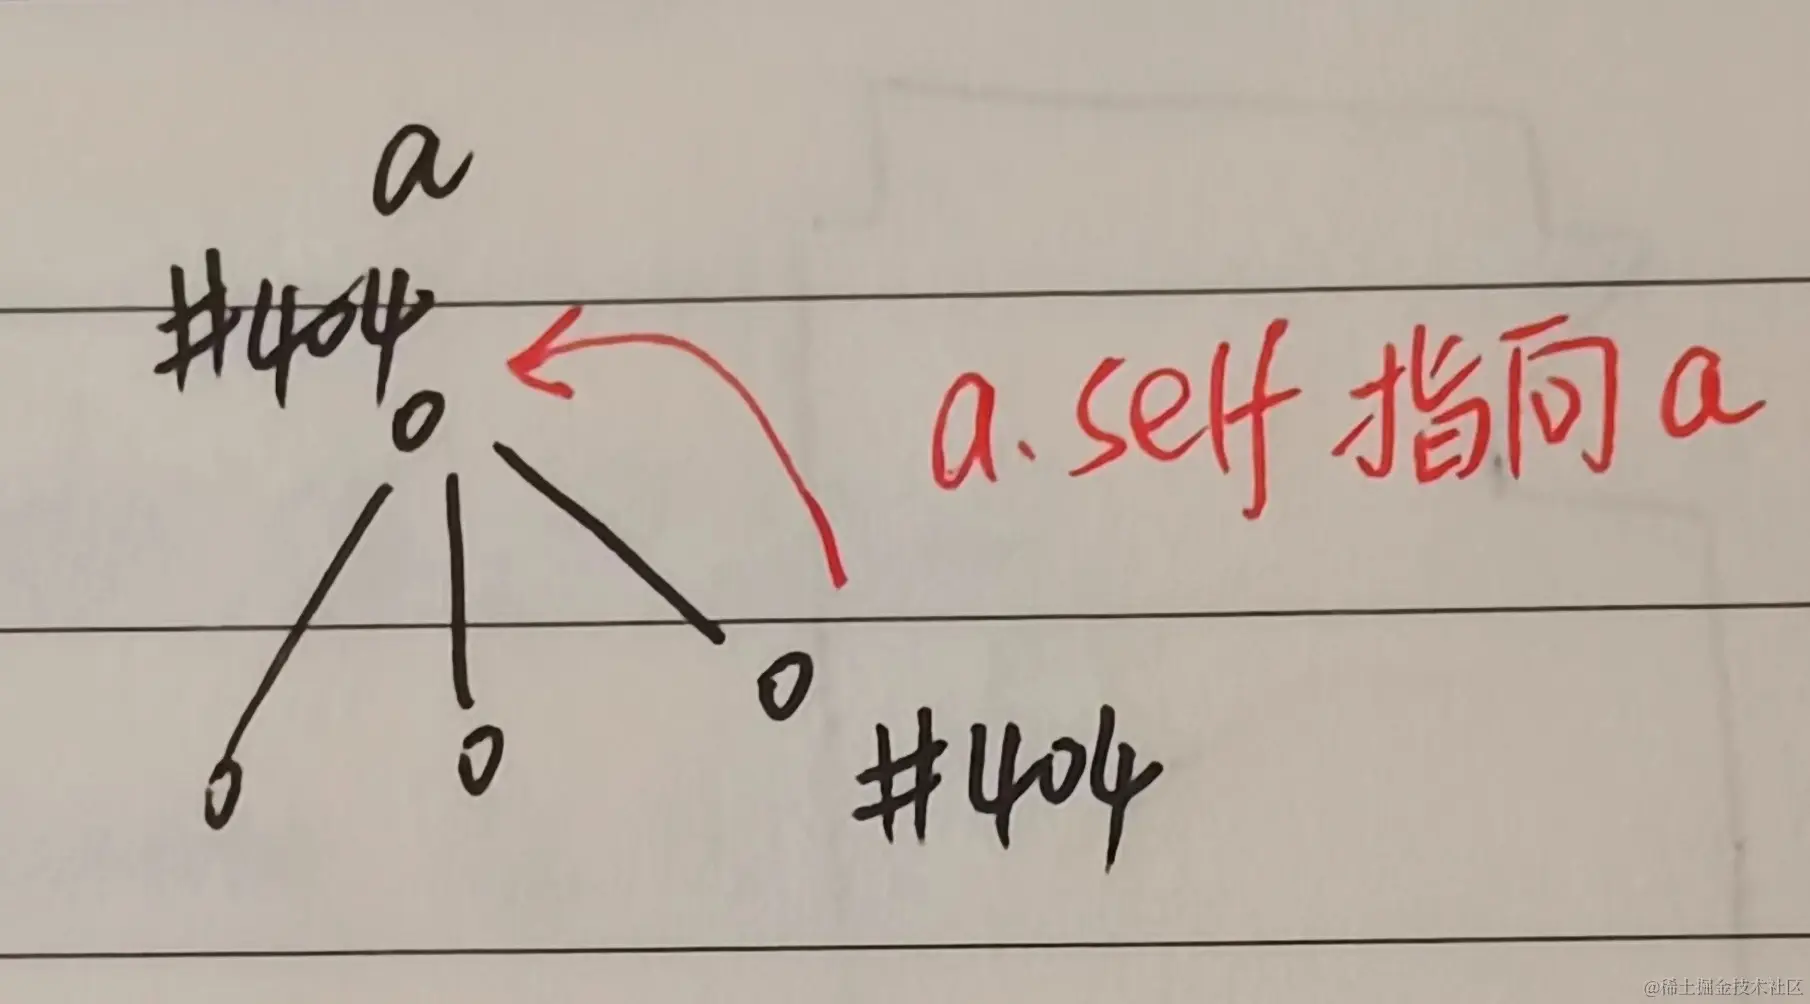 a
#404
a.self 指向 a
#404
@稀土掘金技术社区